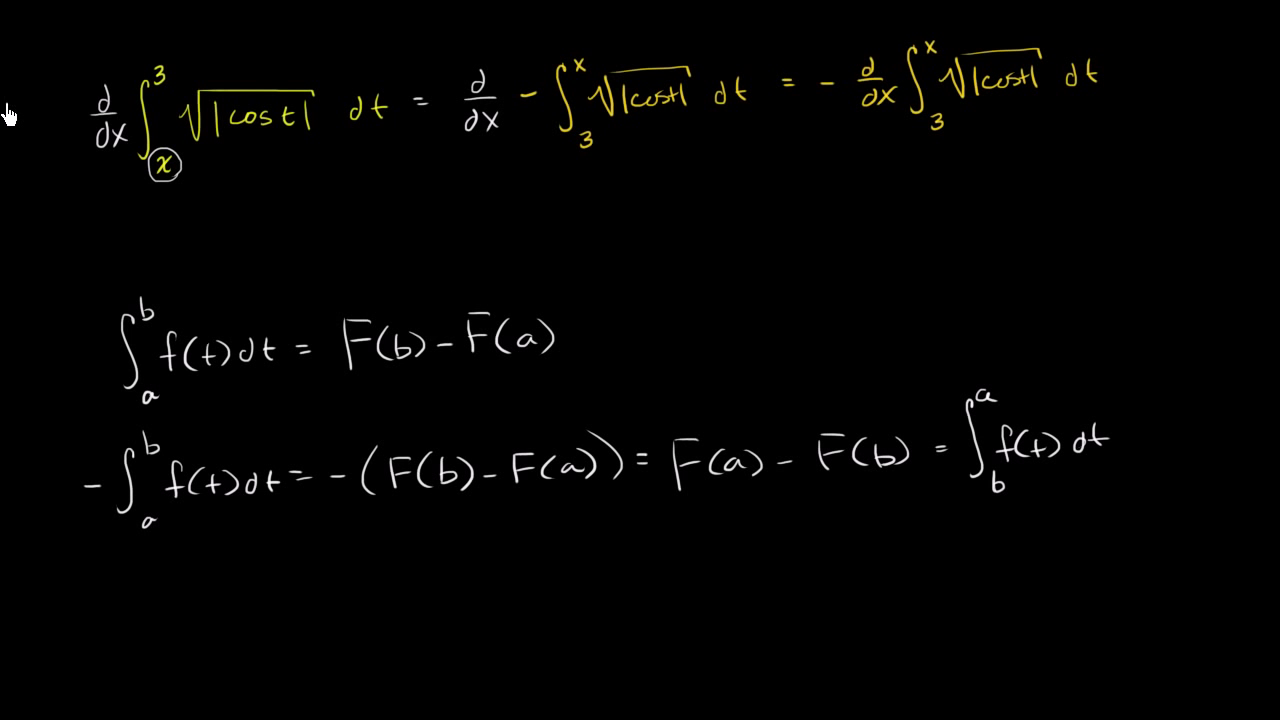 d/dx ∫_x^3 √|cos t| dt = d/dx - ∫_3^x √|cos t| dt = - d/dx ∫_3^x √|cos t| dt
∫_a^b f(t) dt = F(b) - F(a)
- ∫_a^b f(t) dt = - (F(b) - F(a)) = F(a) - F(b) = ∫_b^a f(t) dt